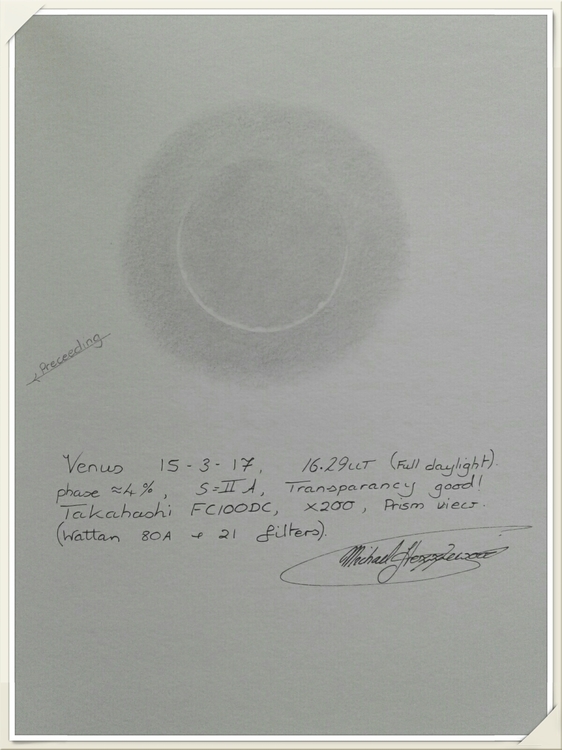 Preceeding
Venus 15-3-17, 16.29UT (Full daylight).
phase ≈4%, S=II A, Transparancy good!
Takahashi FC100DC, x200, Prism view.
(Wattan 80A + 21 filters).
Michael